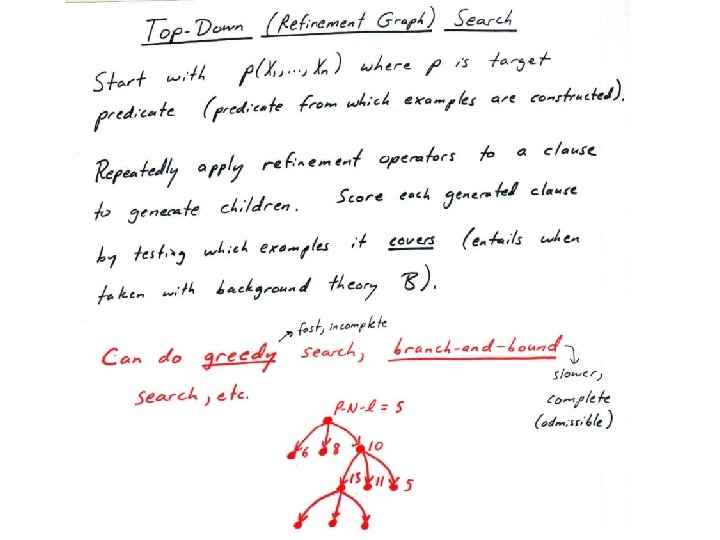 Top-Down (Refinement Graph) Search
Start with p(X₁,...,Xₙ) where p is target
predicate (predicate from which examples are constructed).
Repeatedly apply refinement operators to a clause
to generate children. Score each generated clause
by testing which examples it covers (entails when
taken with background theory B).
fast, incomplete
Can do greedy search, branch-and-bound
slower,
search, etc.
complete
(admissible)
P-N-l = 5
6 8 10
13 11 5